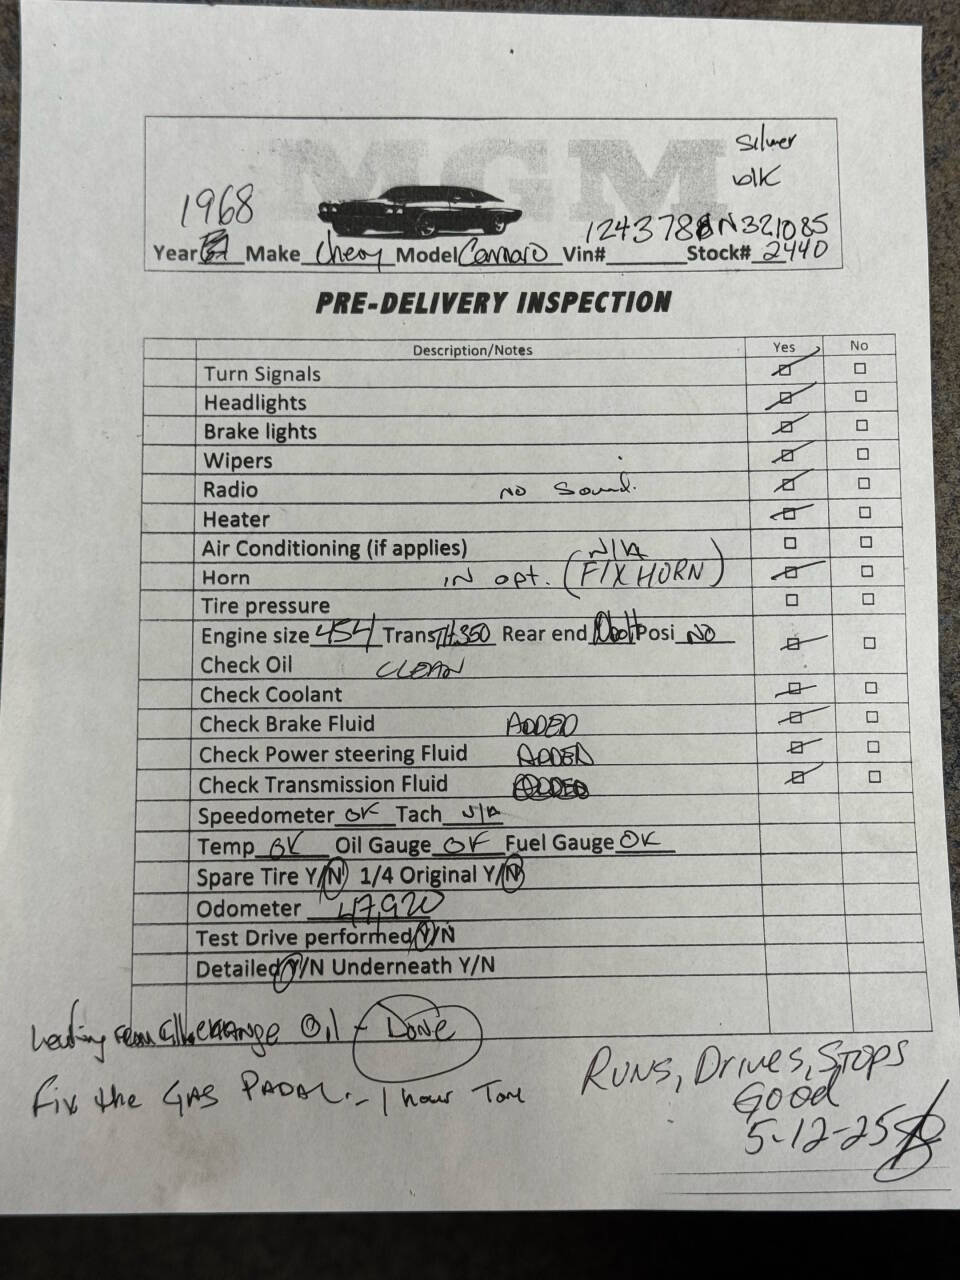 MGM
Silver
blk
1968
124378N321085
Year Make Chevy Model Camaro Vin# Stock# 2440
PRE-DELIVERY INSPECTION
Description/Notes Yes No
Turn Signals
Headlights
Brake lights
Wipers
Radio no Sound.
Heater
Air Conditioning (if applies) N/A
Horn IN opt. (FIX HORN)
Tire pressure
Engine size 454 Trans TH350 Rear end 10bolt Posi NO
Check Oil CLEAN
Check Coolant
Check Brake Fluid ADDED
Check Power steering Fluid ADDED
Check Transmission Fluid ADDED
Speedometer OK Tach N/A
Temp OK Oil Gauge OK Fuel Gauge OK
Spare Tire Y/N 1/4 Original Y/N
Odometer 47,920
Test Drive performed Y/N
Detailed Y/N Underneath Y/N
CHANGE Oil - DONE
Fix the GAS PADAL. - 1 hour Tore
RUNS, Drives, STOPS
GOOD
5-12-25